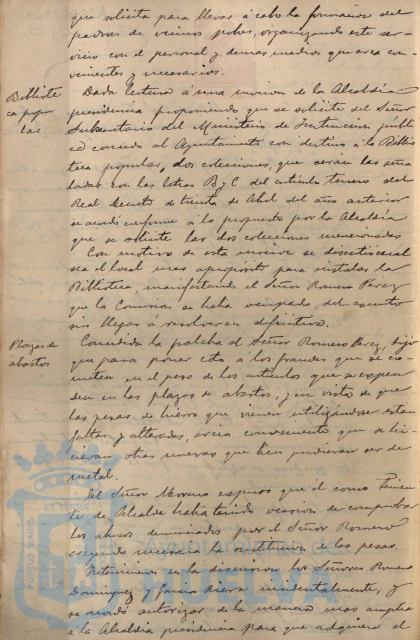 que solicita para llevar á cabo la formacion del
padron de vecinos pobres, organizando este ser-
vicio con el personal y demas medios que crea con-
venientes y necesarios.
Bibliote
ca popu
lar
Dada lectura á una mocion de la Alcaldía
presidencia proponiendo que se solicite del Señor
Subsecretario del Ministerio de Instruccion públi
ca conceda al Ayuntamiento con destino á la Biblio
teca popular, dos colecciones, que seran las seña
ladas con las letras B y C del articulo tercero del
Real Decreto de treinta de Abril del año anterior
se acordó conforme á lo propuesto por la Alcaldia
que se solicite las dos colecciones mencionadas
Con motivo de esta mocion se discutió cual
sea el local mas apropósito para instalar la
Biblioteca, manifestando el Señor Romero Perez
que la Comision se habia ocupado del asunto
sin llegar á resolver en definitiva.
Plazas de
abastos
Concedida la palabra al Señor Romero Perez, dijo
que para poner coto á los fraudes que se co-
meten en el peso de los articulos que se expen
den en las plazas de abastos, y en vista de que
las pesas de hierro que vienen utilizandose estan
faltas y alteradas, creia conveniente que se hi-
cieran otras nuevas que bien pudieran ser de
metal.
El Señor Moreno expuso que él como Tenien
te de Alcalde habia tenido ocasion de comprobar
los abusos denunciados por el Señor Romero
creyendo necesaria la sustitucion de las pesas.
Intervienen en la discusion los Señores Romero
Dominguez y Garcia incidentalmente, y
se acordó autorizar de la manera mas amplia
á la Alcaldia presidencia para que adquiera el
PORTUS MARIS
ET TERRA
Ayuntamiento de
HUELVA